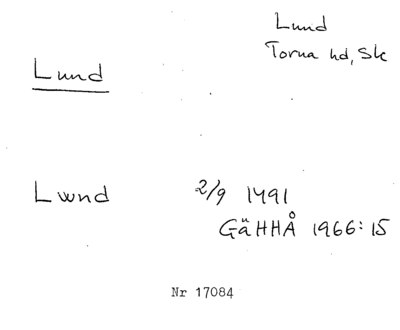 Lund
Torna hd, Sk
Lund
Lwnd 2/9 1491
GäHHÅ 1966:15
Nr 17084